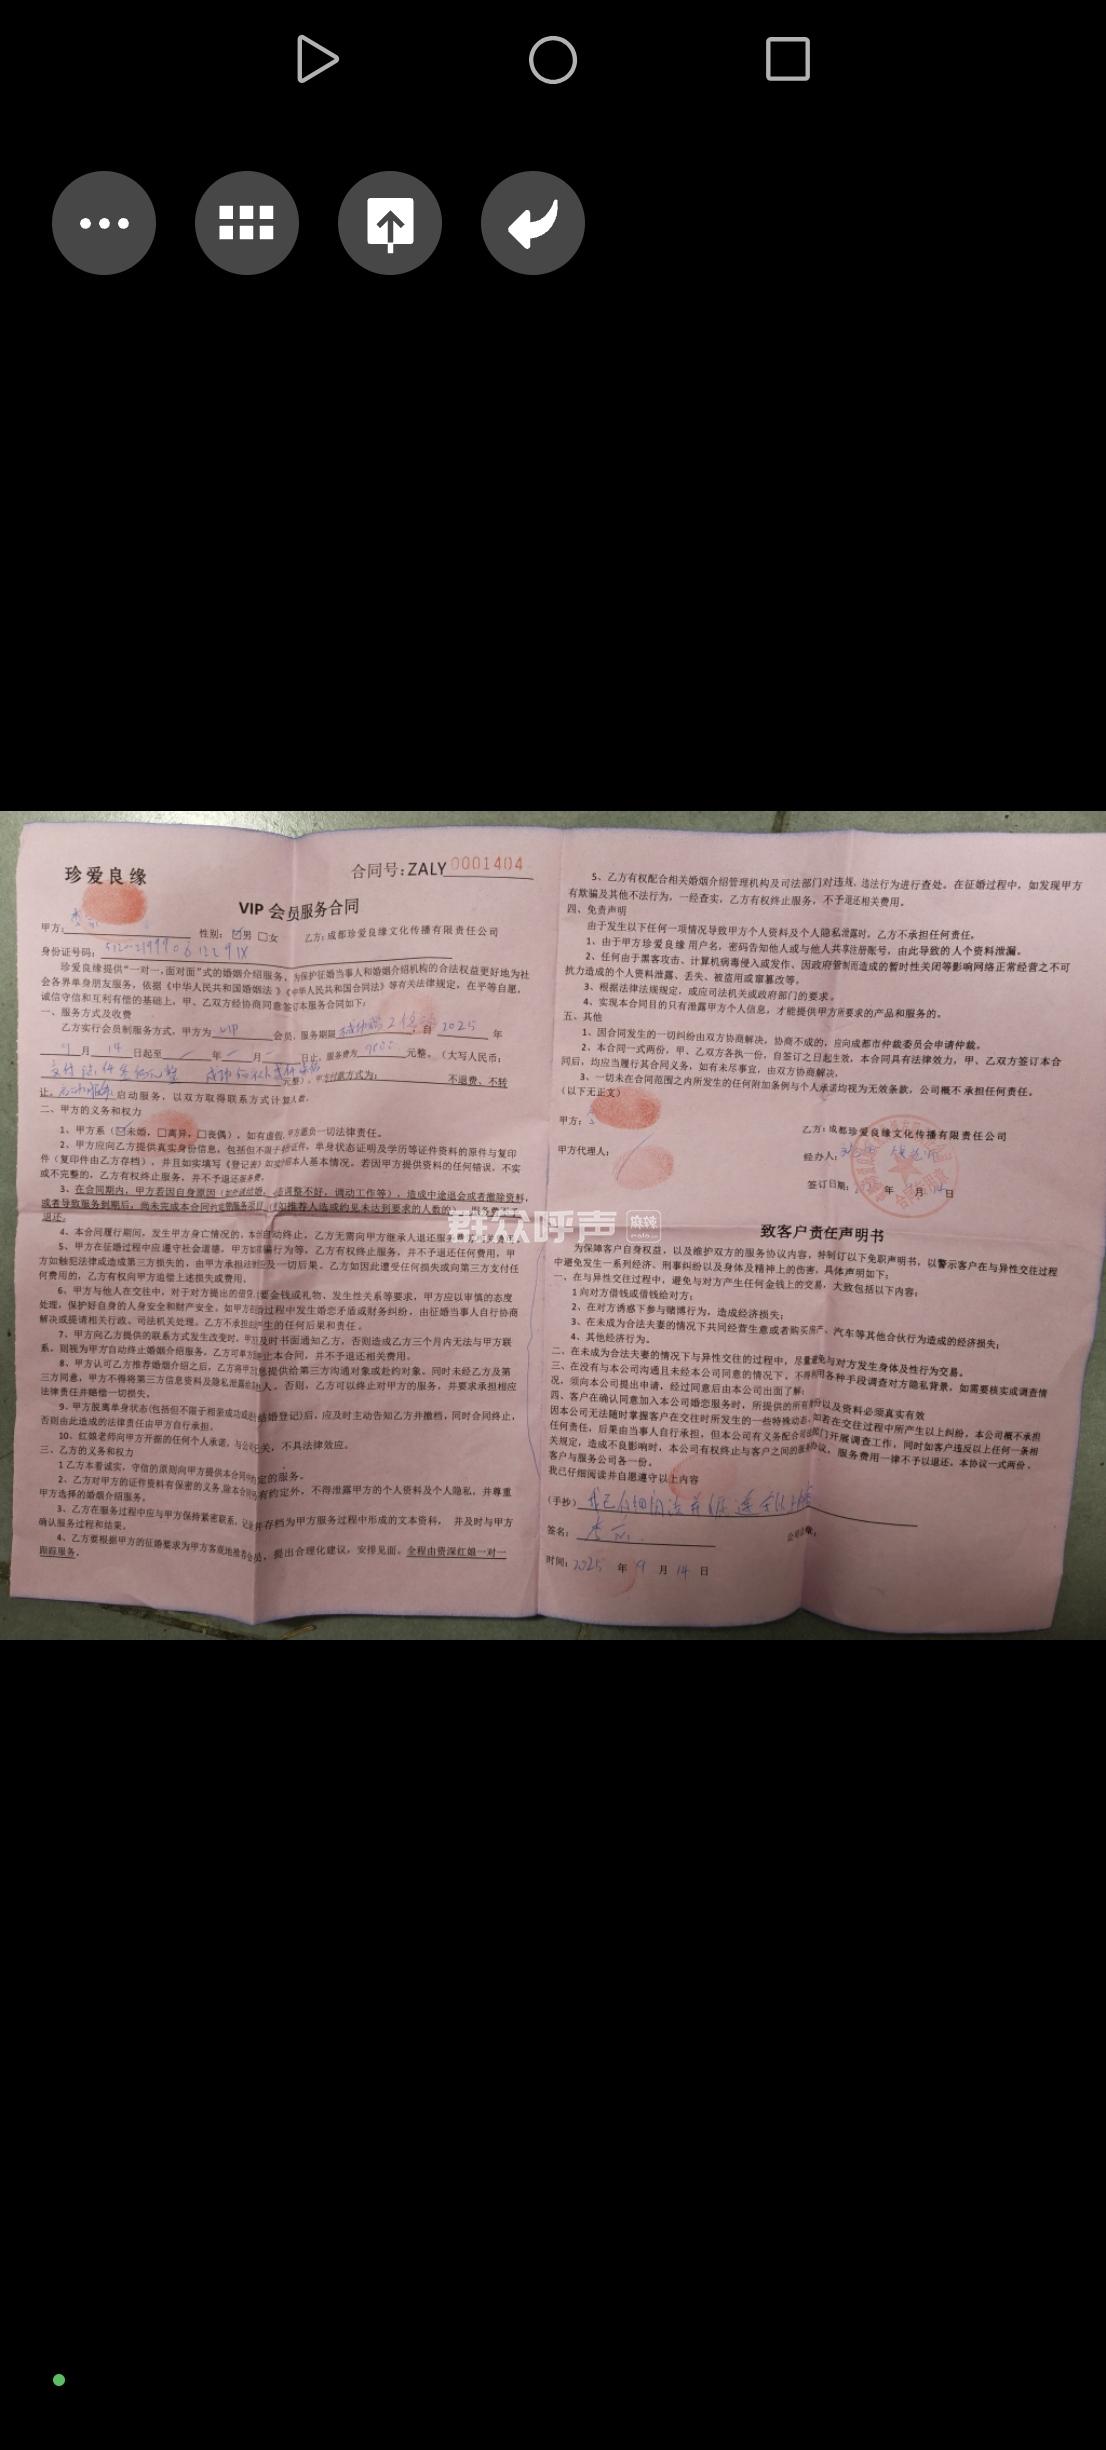 珍爱良缘
合同号:ZALY 0001404
VIP 会员服务合同
甲方: 性别: ☑男 □女 乙方:成都珍爱良缘文化传播有限责任公司
身份证号码:
珍爱良缘提供“一对一,面对面”式的婚姻介绍服务,为保护征婚当事人和婚姻介绍机构的合法权益更好地为社
会各界单身朋友服务,依据《中华人民共和国婚姻法》《中华人民共和国合同法》等有关法律规定,在平等自愿,
诚信守信和互利有偿的基础上,甲、乙双方经协商同意签订本服务合同如下:
一、服务方式及收费
乙方实行会员制服务方式,甲方为 VIP 会员,服务期限 自 2025 年
9 月 14 日起至 年 月 日止,服务费为 元整。(大写人民币:
元整),甲方付款方式为: 不退费、不转
让。 启动服务,以双方取得联系方式计算人数。
二、甲方的义务和权力
1、甲方系(☑未婚,□离异,□丧偶),如有虚假,甲方愿负一切法律责任。
2、甲方应向乙方提供真实身份信息,包括但不限于 证件,单身状态证明及学历等证件资料的原件与复印
件(复印件由乙方存档),并且如实填写《登记表》如实介绍本人基本情况,若因甲方提供资料的任何错误,不实
或不完整的,乙方有权终止服务,并不予退还服务费。
3、在合同期内,甲方若因自身原因( 调整不好,调动工作等),造成中途退会或者撤除资料,
或者导致服务到期后,尚未完成本合同约定的服务项目,(如推荐人选或约见未达到要求的人数的),服务费不予
退还。
4、本合同履行期间,发生甲方身亡情况的,本合同自动终止,乙方无需向甲方继承人退还服务费
5、甲方在征婚过程中应遵守社会道德,甲方如有 骗行为等,乙方有权终止服务,并不予退还任何费用,甲
方如触犯法律或造成第三方损失的,由甲方承担法律责任及一切后果。乙方如因此遭受任何损失或向第三方支付任
何费用的,乙方有权向甲方追偿上述损失或费用。
6、甲方与他人在交往中,对于对方提出的借贷,要金钱或礼物、发生性关系等要求,甲方应以审慎的态度
处理,保护好自身的人身安全和财产安全,如甲方在 过程中发生婚恋矛盾或财务纠纷,由征婚当事人自行协商
解决或提请相关行政、司法机关处理。乙方不承担由此产生的任何后果和责任。
7、甲方向乙方提供的联系方式发生改变时,甲方应及时书面通知乙方,否则造成乙方三个月内无法与甲方联
系,则视为甲方自动终止婚姻介绍服务,乙方可单方面终止本合同,并不予退还相关费用。
8、甲方认可乙方推荐婚姻介绍之后,乙方将甲方信息提供给第三方沟通对象或赴约对象。同时未经乙方及第
三方同意,甲方不得将第三方信息资料及隐私泄露给他人。否则,乙方可以终止对甲方的服务,并要求承担相应
法律责任并赔偿一切损失。
9、甲方脱离单身状态(包括但不限于相亲成功或进行结婚登记)后,应及时主动告知乙方并撤档,同时合同终止,
否则由此造成的法律责任由甲方自行承担。
10、红娘老师向甲方开据的任何个人承诺,与公司无关,不具法律效应。
三、乙方的义务和权力
1 乙方本着诚实,守信的原则向甲方提供本合同中约定的服务。
2、乙方对甲方的证件资料有保密的义务,除本合同另有约定外,不得泄露甲方的个人资料及个人隐私,并尊重
甲方选择的婚姻介绍服务。
3、乙方在服务过程中应与甲方保持紧密联系,记录并存档为甲方服务过程中形成的文本资料, 并及时与甲方
确认服务过程和结果。
4、乙方要根据甲方的征婚要求为甲方客观地推荐会员,提出合理化建议,安排见面。全程由资深红娘一对一
跟踪服务。
5、乙方有权配合相关婚姻介绍管理机构及司法部门对违规、违法行为进行查处。在征婚过程中,如发现甲方
有欺骗及其他不法行为,一经查实,乙方有权终止服务,不予退还相关费用。
四、免责声明
由于发生以下任何一项情况导致甲方个人资料及个人隐私泄露时,乙方不承担任何责任。
1、由于甲方珍爱良缘 用户名,密码告知他人或与他人共享注册账号,由此导致的人个资料泄漏。
2、任何由于黑客攻击、计算机病毒侵入或发作、因政府管制而造成的暂时性关闭等影响网络正常经营之不可
抗力造成的个人资料泄露、丢失、被盗用或窜篡改等。
3、根据法律法规规定,或应司法机关或政府部门的要求。
4、实现本合同目的只有泄露甲方个人信息,才能提供甲方所要求的产品和服务的。
五、其他
1、因合同发生的一切纠纷由双方协商解决,协商不成的,应向成都市仲裁委员会申请仲裁。
2、本合同一式两份,甲、乙双方各执一份,自签订之日起生效,本合同具有法律效力,甲、乙双方签订本合
同后,均应当履行其合同义务,如有未尽事宜,由双方协商解决。
3、一切未在合同范围之内所发生的任何附加条例与个人承诺均视为无效条款,公司概不承担任何责任。
(以下无正文)
甲方: 乙方:成都珍爱良缘文化传播有限责任公司
甲方代理人: 经办人:
签订日期: 年 月 日
群众呼声 麻辣
致客户责任声明书
为保障客户自身权益,以及维护双方的服务协议内容,特制订以下免职声明书,以警示客户在与异性交往过程
中避免发生一系列经济、刑事纠纷以及身体及精神上的伤害,具体声明如下:
一、在与异性交往过程中,避免与对方产生任何金钱上的交易,大致包括以下内容:
1 向对方借钱或借钱给对方;
2、在对方诱惑下参与赌博行为,造成经济损失;
3、在未成为合法夫妻的情况下共同经营生意或者购买房产、汽车等其他合伙行为造成的经济损失;
4、其他经济行为。
二、在未成为合法夫妻的情况下与异性交往的过程中,尽量避免与对方发生身体及性行为交易。
三、在没有与本公司沟通且未经本公司同意的情况下,不得利用各种手段调查对方隐私背景,如需要核实或调查情
况,须向本公司提出申请,经过同意后由本公司出面了解;
四、客户在确认同意加入本公司婚恋服务时,所提供的所有身份以及资料必须真实有效
因本公司无法随时掌握客户在交往时所发生的一些特殊动态,如若在交往过程中所产生以上纠纷,本公司概不承担
任何责任,后果由当事人自行承担,但本公司有义务配合司法部门开展调查工作,同时如客户违反以上任何一条相
关规定,造成不良影响时,本公司有权终止与客户之间的服务协议,服务费用一律不予以退还。本协议一式两份,
客户与服务公司各一份。
我已仔细阅读并自愿遵守以上内容
(手抄)
签名: 公司盖章:
时间: 2025 年 9 月 14 日